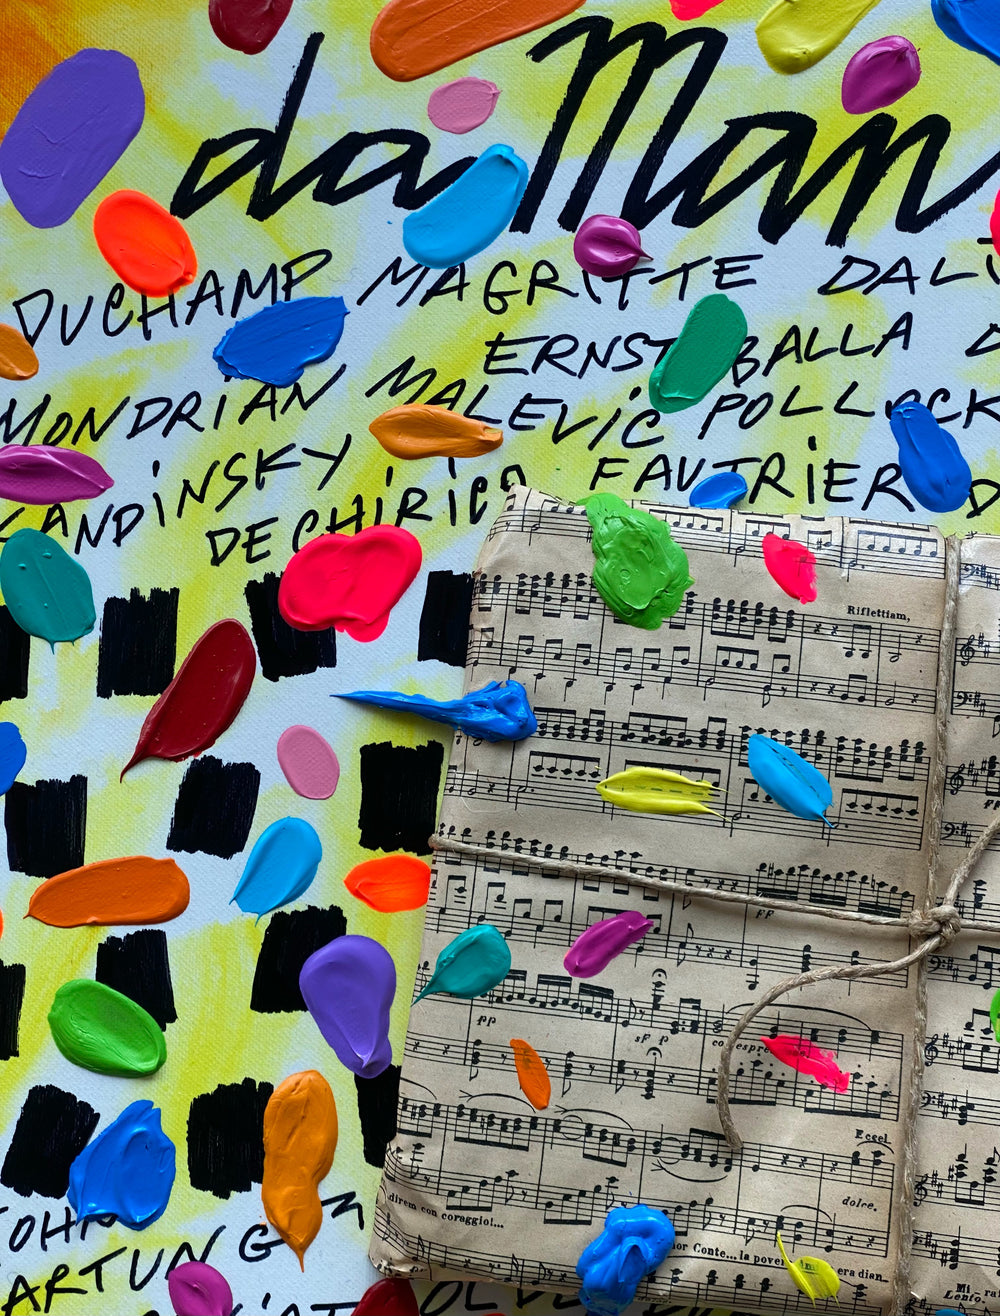 da Man
DUCHAMP MAGRITTE DALI
ERNST BALLA
MONDRIAN MALEVIC POLLOCK
KANDINSKY FAUTRIER D
DECHIRICO
Riflettiam,
ff
FF
pp
sF p
co espre
Eccel
dolce.
direm con coraggio!...
ior Conte... la pover era dian
Mi
Lento.
JOHN
ARTUNG